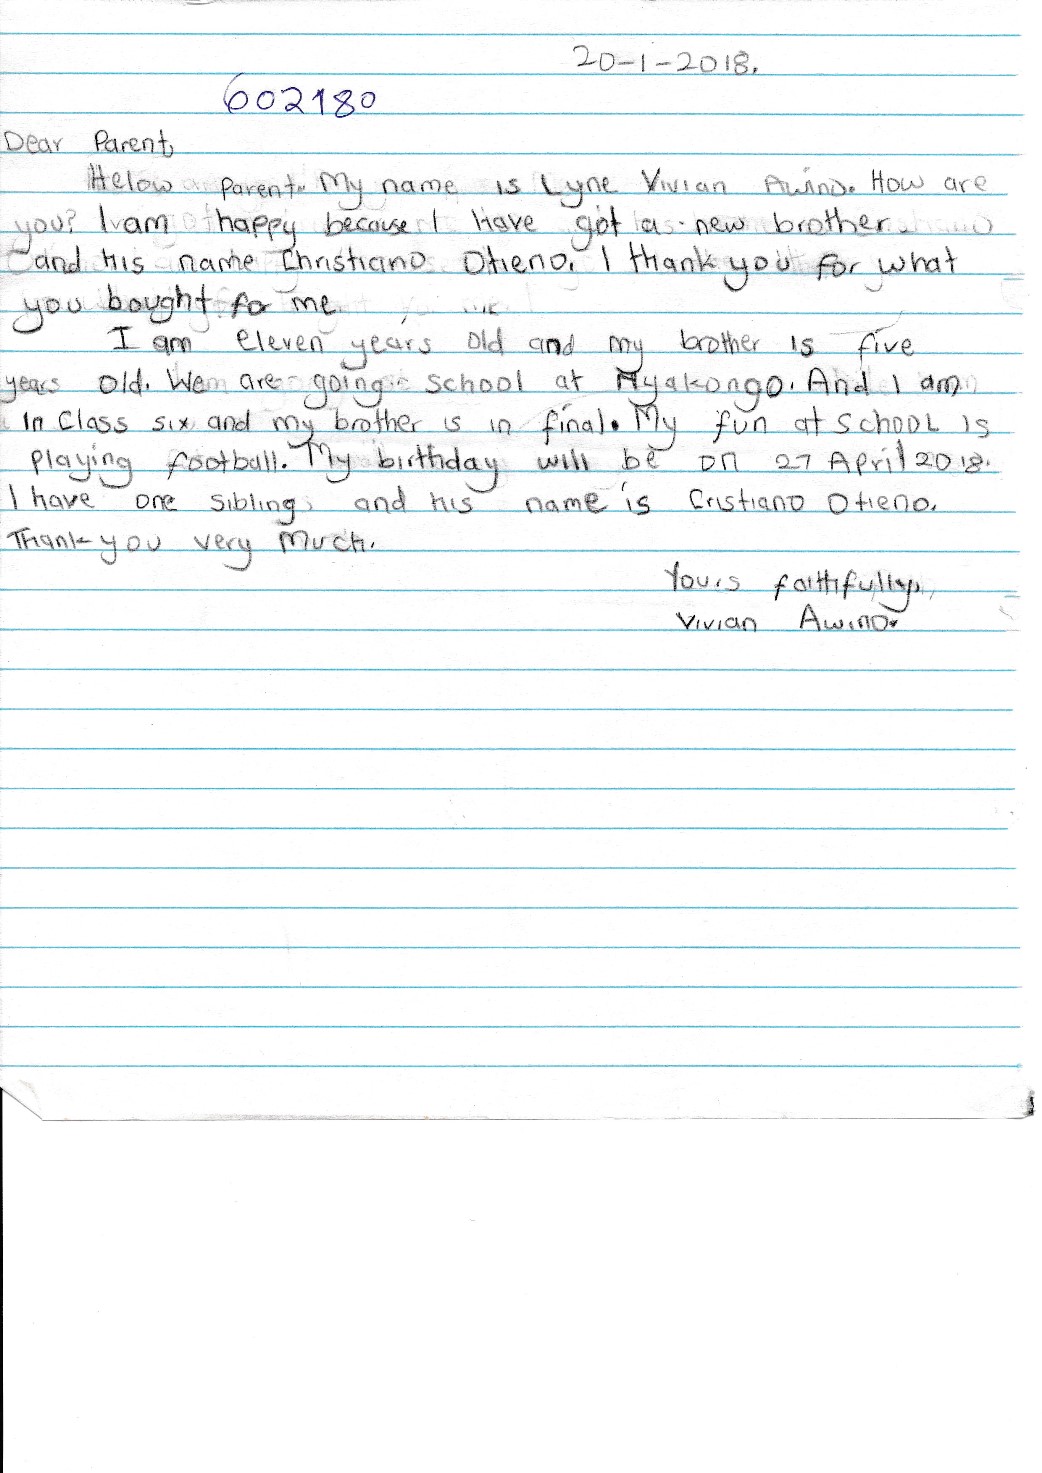 20-1-2018.
602180
Dear Parent,
Helow Parent. My name is Lyne Vivian Awino. How are
you? I am happy because I have got a new brother
and his name Christiano Otieno. I thank you for what
you bought for me.
I am eleven years old and my brother is five
years old. We are going school at Nyakongo. And I am
in Class six and my brother is in final. My fun at school is
playing football. My birthday will be on 27 April 2018.
I have one sibling and his name is Cristiano Otieno.
Thank you very Much.
Yours faithfully,
Vivian Awino.